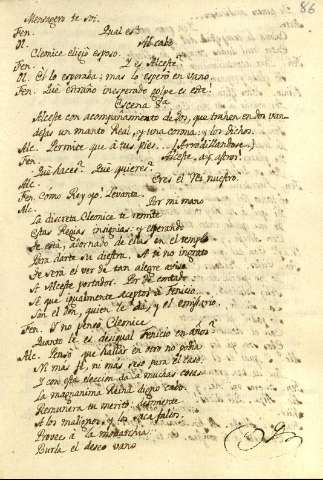 86
Mensagero te oí.
Fen. Qual es?
Ol. Al cabo
Cleonice eligió esposo.
Fen. Y es Alceste?
Ol. El lo esperaba; mas lo esperó en vano.
Fen. Qué extraño inesperado golpe es este!
Escena 8ª
Alceste con acompañamiento de dos, que trahen en dos bandejas un manto Real, y una corona; y los dichos.
Alc. Permite que á tus pies... (Arrodillandose.)
Fen. Alceste, ay astros!
Qué haces? Qué quieres?
Alc. Eres el Rey nuestro.
Fen. Como Rey yo! Levanta.
Alc. Por mi mano
La discreta Cleonice te remite
Estas Regias insignias; y esperando
Se está, adornado de ellas en el templo
Para darte su diestra. A ti no ingrato
Te será el ver de tan alegre aviso
A Alceste portador.
Sé que igualmente aceptos á Fenicio
Son el don, quien le dá, y el emisario.
Fen. Y no pensó Cleonice
Quanto le es desigual Fenicio en años?
Alc. Pensó que hallar en otro no podia
Ni mas fé, ni mas seso para el caso.
Y con esta eleccion dá á muchas cosas
La magnanima Reina digno cabo.
Remunera tu merito, desmiente
A los malignos, y los saca falsos.
Provee á la monarchia
Burla el deseo vano